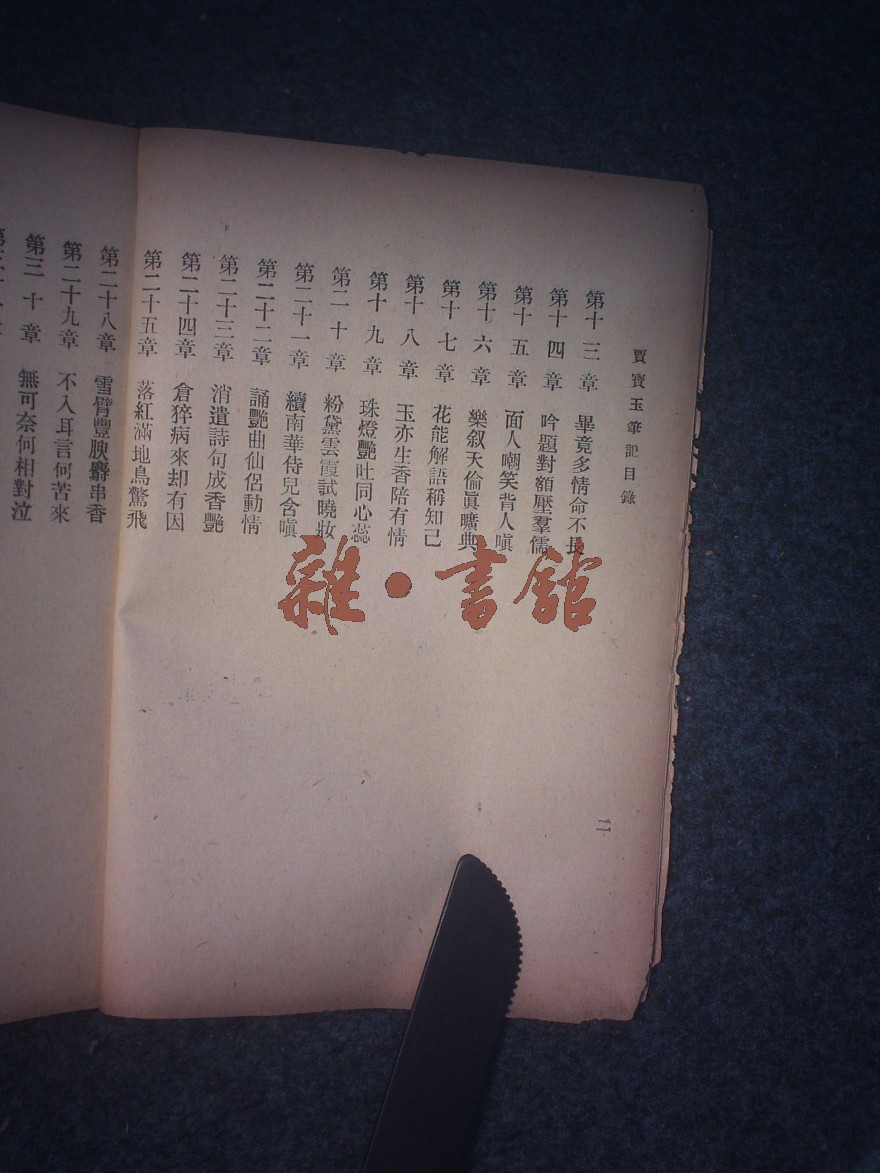 賈寶玉筆記目錄
第十三章 畢竟多情命不長
第十四章 吟題對額壓羣儒
第十五章 面人嘲笑背人嗔
第十六章 樂叙天倫眞曠典
第十七章 花能解語稱知己
第十八章 玉亦生香陪有情
第十九章 珠燈艷吐同心蕊
第二十章 粉黛雲霞試曉妝
第二十一章 續南華侍兒含嗔
第二十二章 誦艷曲仙侶動情
第二十三章 消遣詩句成香艷
第二十四章 倉猝病來却有因
第二十五章 落紅滿地鳥驚飛
二
第二十八章 雪臂豐腴麝串香
第二十九章 不入耳言何苦來
第三十章 無可奈何相對泣
雜·書館